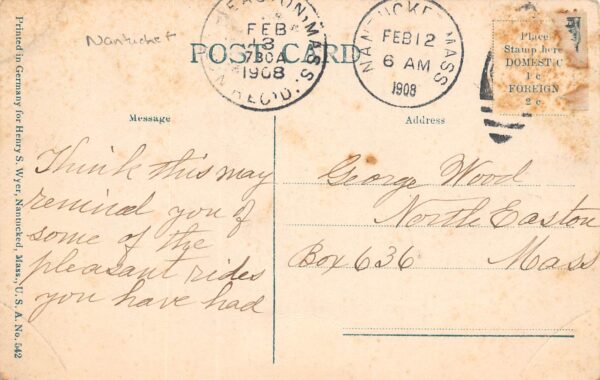 Nantucket
POST CARD
EASTON, MASS.
FEB
13
730A
1908
REC'D.
NANTUCKET MASS
FEB 12
6 AM
1908
Place
Stamp here
DOMESTIC
1 c
FOREIGN
2 c
Message
Address
Think this may
remind you of
some of the
pleasant rides
you have had
George Wood
North Easton
Box 636 Mass
Printed in Germany for Henry S. Wyer, Nantucked, Mass., U. S. A. No. 542